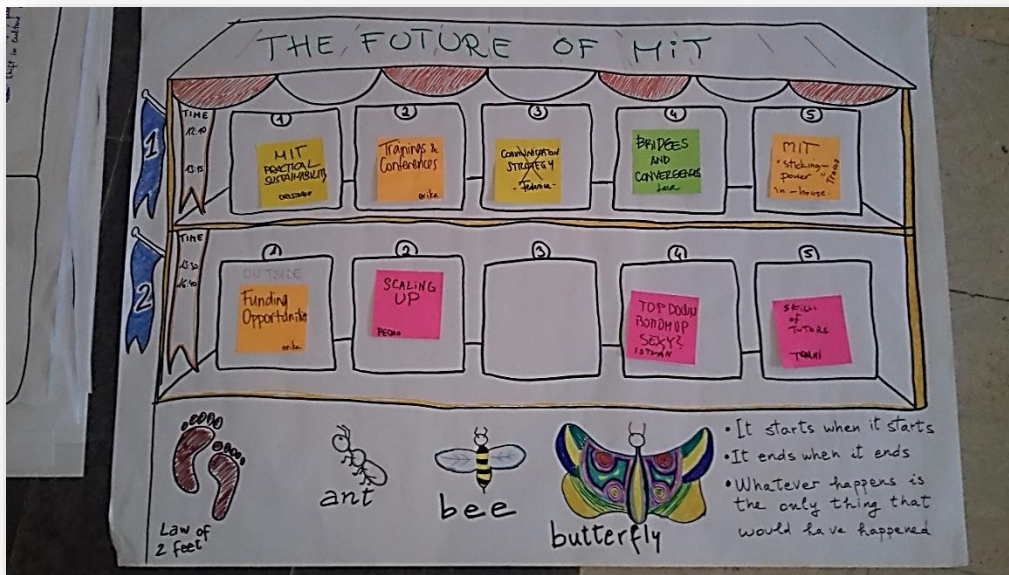 THE FUTURE OF MiT
1
TIME
12:10
13:15
1
MIT
PRACTICAL
SUSTAINABILITY
2
Trainings &
Conferences
erika
3
COMMUNICATION
STRATEGY
- Federica -
4
BRIDGES
AND
CONVERGENCES
Lua
5
MIT
"sticking-
power"
in-house
2
TIME
15:30
16:40
1
OUTSIDE
Funding
Opportunities
erika
2
SCALING
UP
PEDRO
3
4
TOP DOWN
BOTTOM UP
SEXY?
ISTVAN
5
SKILLS
of
TUTORS
Law of
2 feet
ant
bee
butterfly
• It starts when it starts
• It ends when it ends
• Whatever happens is
the only thing that
would have happened